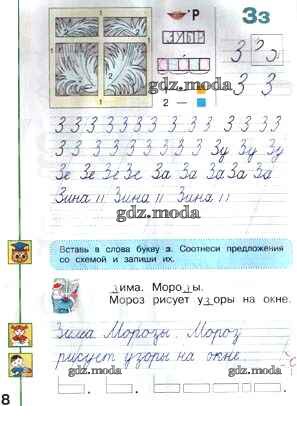 Р
Зз
1
1
1
2 —
З З З
З З
gdz.moda
З З З З З З З З З З З З З
З З З З З З З З З Зу Зу Зу
Зе Зе Зе Зе За За За За За
Зина Зина Зина
gdz.moda
Вставь в слова букву з. Соотнеси предложения
со схемой и запиши их.
зима. Морозы.
Мороз рисует узоры на окне.
gdz.moda
Зима. Морозы. Мороз
рисует узоры на окне.
gdz.moda
8